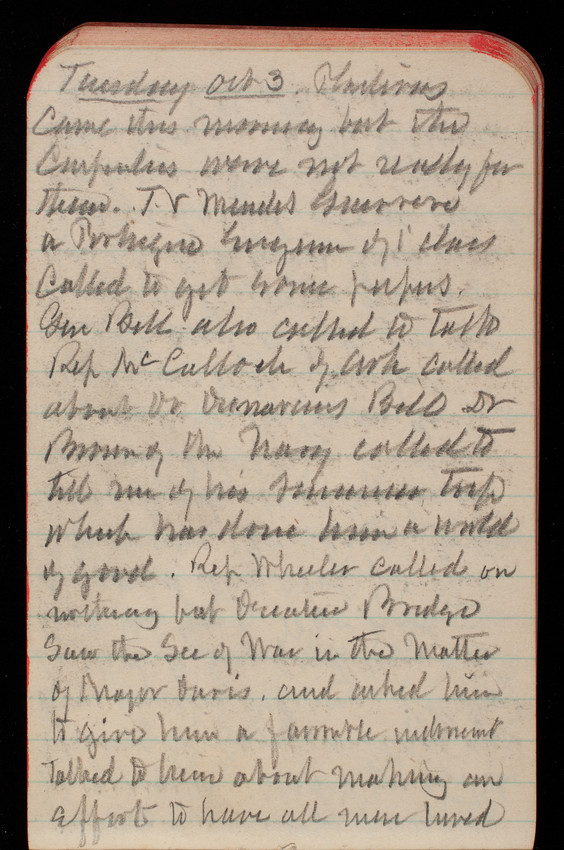 Tuesday Oct 3.
Came this morning but the
Carpenters were not ready for
them. J. V Mendes Guerrero
a Portugese Engineer of 1 class
Called to get some papers.
Gen Bell also called to talk
Rep McCulloch of Ark called
about Dr Bill Dr
Brown of the Navy called to
tell me of his summer trip
which has done him a world
of good. Rep Wheeler called on
nothing but Decatur Bridge
Saw the Sec of War in the Matter
of Major Davis. and asked him
to give him a favorable indorsement
Talked to him about making an
effort to have all men